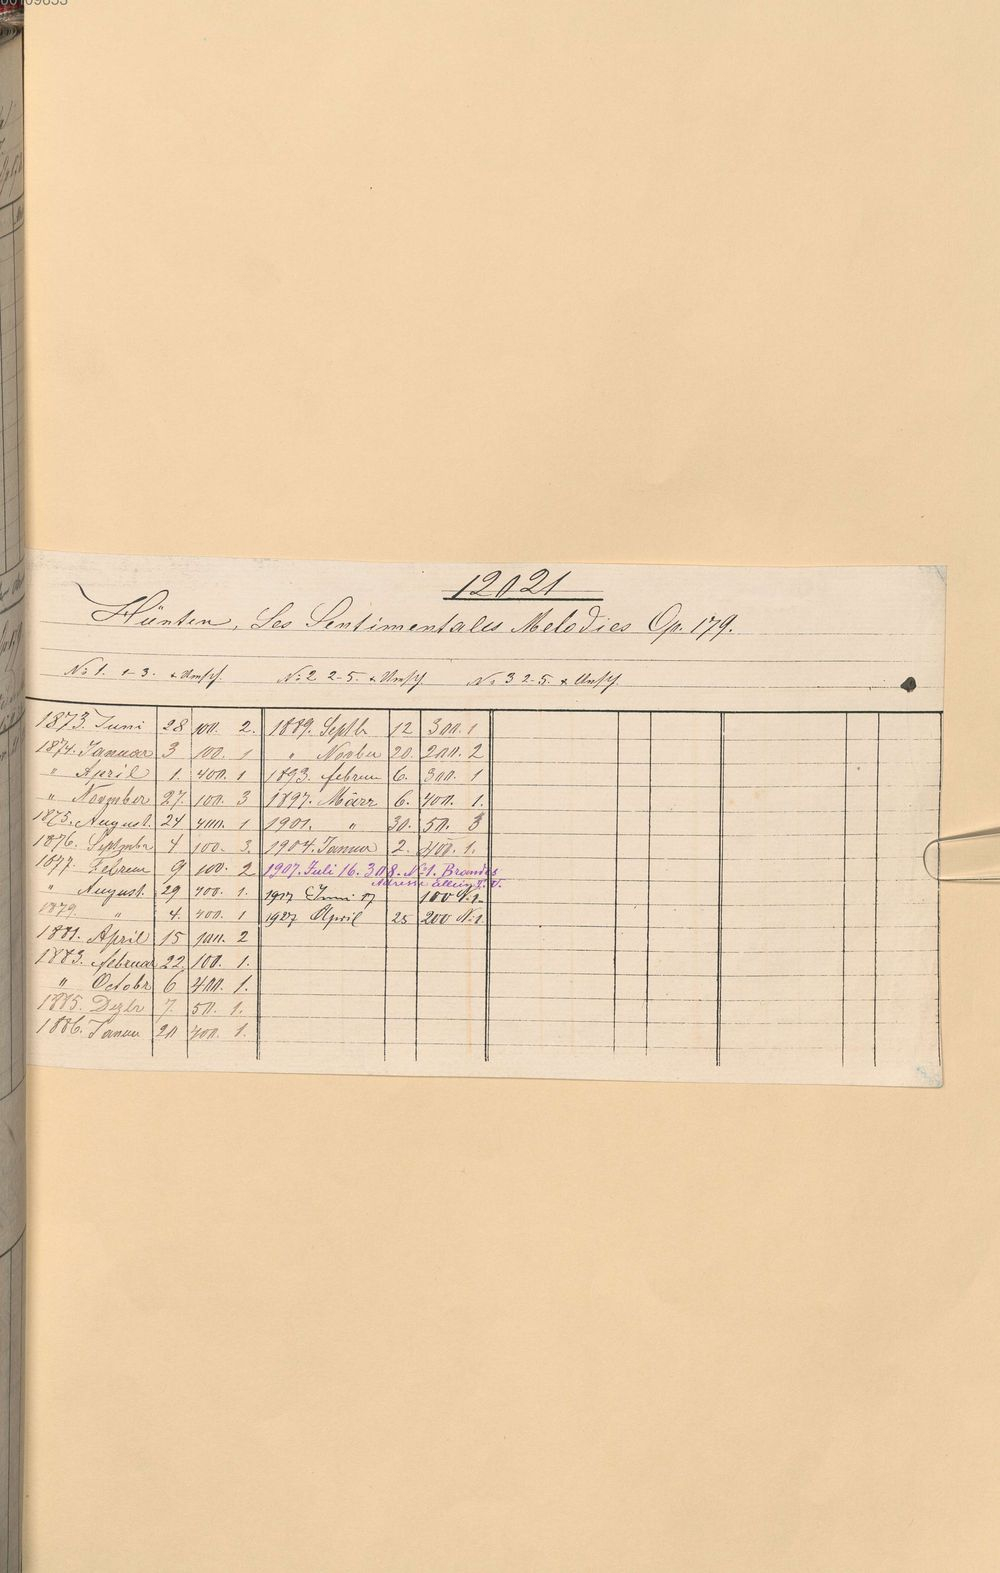 12021
Hünten, Les Sentimentales Melodies Op. 179.
No 1. 2-3. & Umschl. No 2 2-5. & Umschl. No 3 2-5. & Umschl.
1873. Juni 28 100. 2. 1889. Septbr 12 300. 1
1874. Januar 3 100. 1 " Novber 20. 200. 2
" April 1. 400. 1 1893. Februar 6. 300. 1
" November 27. 100. 3 1897. März 6. 400. 1.
1875. August. 24 400. 1 1901. " 30. 50. 3
1876. Septmbr 4 100. 3. 1904. Januar 2. 400. 1.
1877. Februar 9 100. 2 1907. Juli 16. 308. No 1. Brandes
Adresse allein
" August. 29 400. 1. 1917 Juni 17 100 No 1
1879. " 4. 400. 1 1927 April 25 200 No 1
1881. April 15 100. 2
1883. Februar 22 100. 1.
" Octobr 6 400. 1.
1885. Dezbr 7. 50. 1.
1886. Januar 20 400. 1.